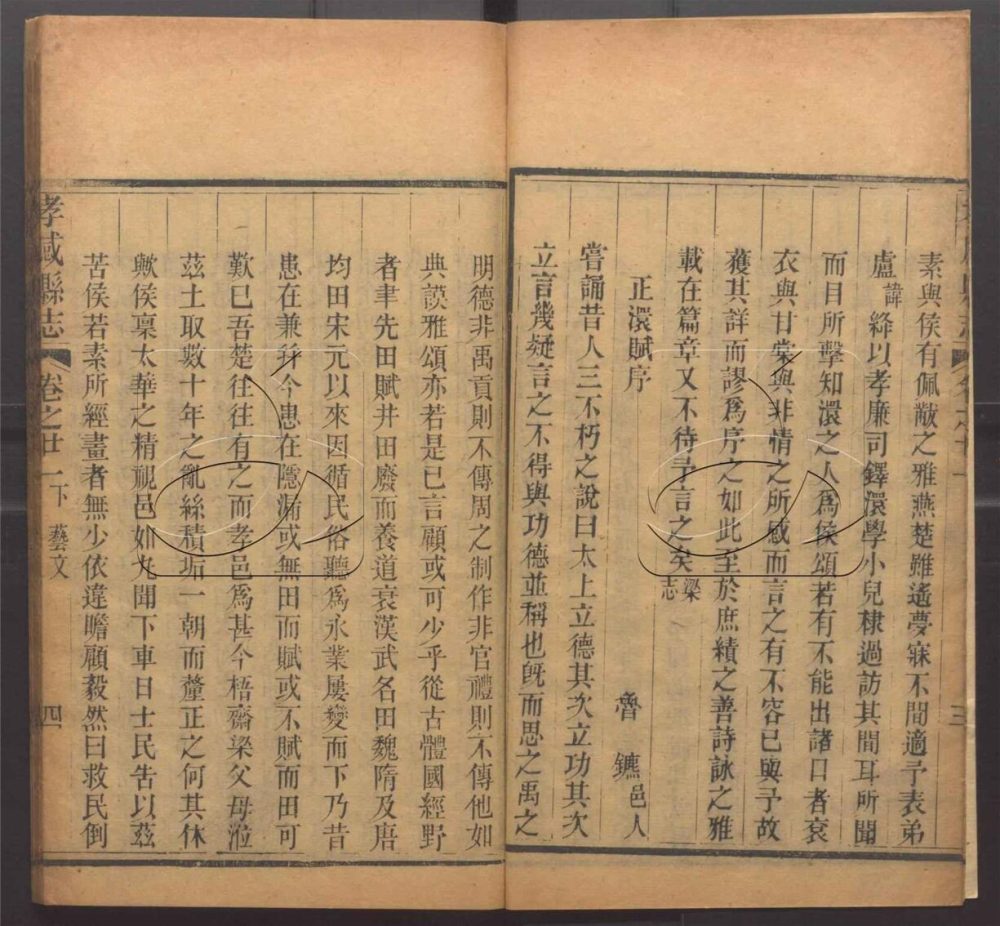 素與侯有佩黻之雅燕楚雖遙夢寐不間適予表弟
盧諱絳以孝廉司鐸澴學小兒棣過訪其間耳所聞
而目所擊知澴之人爲侯頌若有不能出諸口者衮
衣與甘棠與非情之所感而言之有不容已與予故
獲其詳而謬爲序之如此至於庶績之善詩詠之雅
載在篇章又不待予言之矣梁志
正澴賦序
魯鑣邑人
嘗誦昔人三不朽之說曰太上立德其次立功其次
立言幾疑言之不得與功德並稱也旣而思之禹之
孝感縣志
卷之廿一下
藝文
四
明德非禹貢則不傳周之制作非官禮則不傳他如
典謨雅頌亦若是已言顧或可少乎從古體國經野
者聿先田賦井田廢而養道衰漢武名田魏隋及唐
均田宋元以來因循民俗聽爲永業屢變而下乃昔
患在兼幷今患在隱漏或無田而賦或不賦而田可
歎已吾楚往往有之而孝邑爲甚今梧齋梁父母涖
茲土取數十年之亂絲積垢一朝而釐正之何其休
歟侯稟太華之精視邑如丸聞下車日士民告以茲
苦侯若素所經畫者無少依違瞻顧毅然曰救民倒